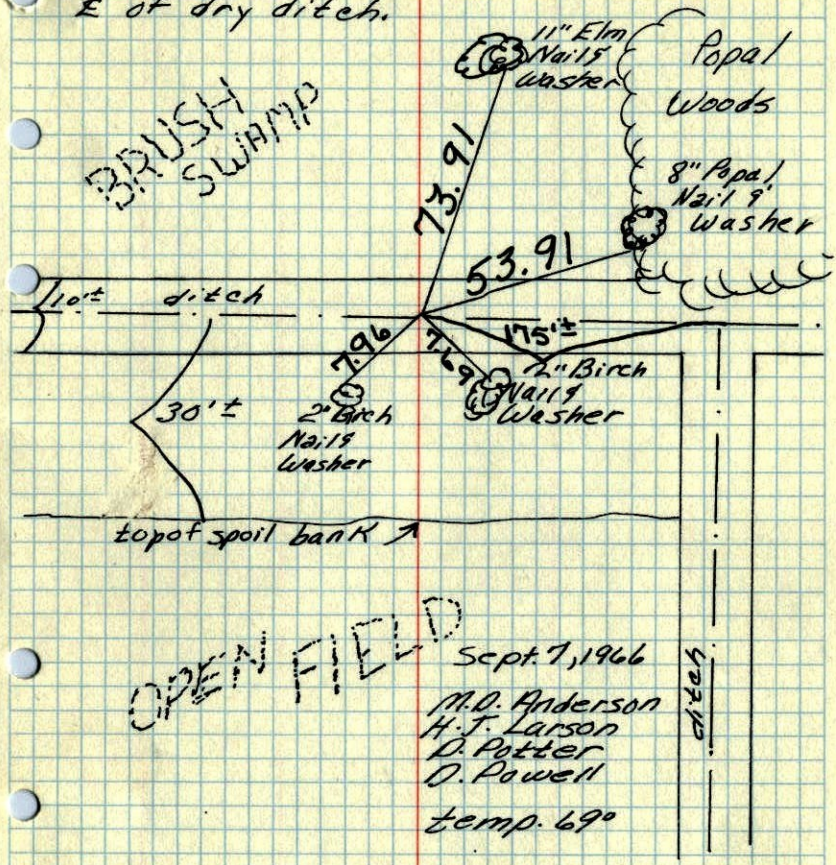 ℄ of dry ditch.
11" Elm
Nail &
Washer
Popal
Woods
BRUSH
SWAMP
8" Popal
Nail &
Washer
73.91
53.91
10'±
ditch
175'±
7.96
7.69
2" Birch
Nail &
Washer
30'±
2" Birch
Nail &
Washer
top of spoil bank
OPEN FIELD
Sept. 7, 1966
M.D. Anderson
H.J. Larson
D. Potter
D. Powell
temp. 69°
ditch